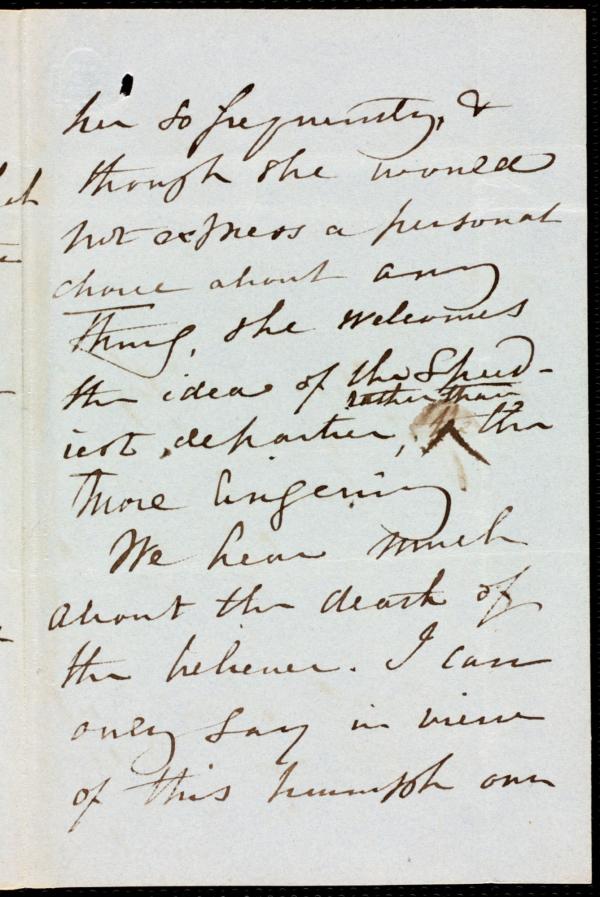 her so frequently, &
though she would
not express a personal
choice about any
thing, she welcomes
the idea of the speed-
rather than
iest departure, the
more lingering
We hear much
about the death of
the believer. I can
only say in view
of this triumph over